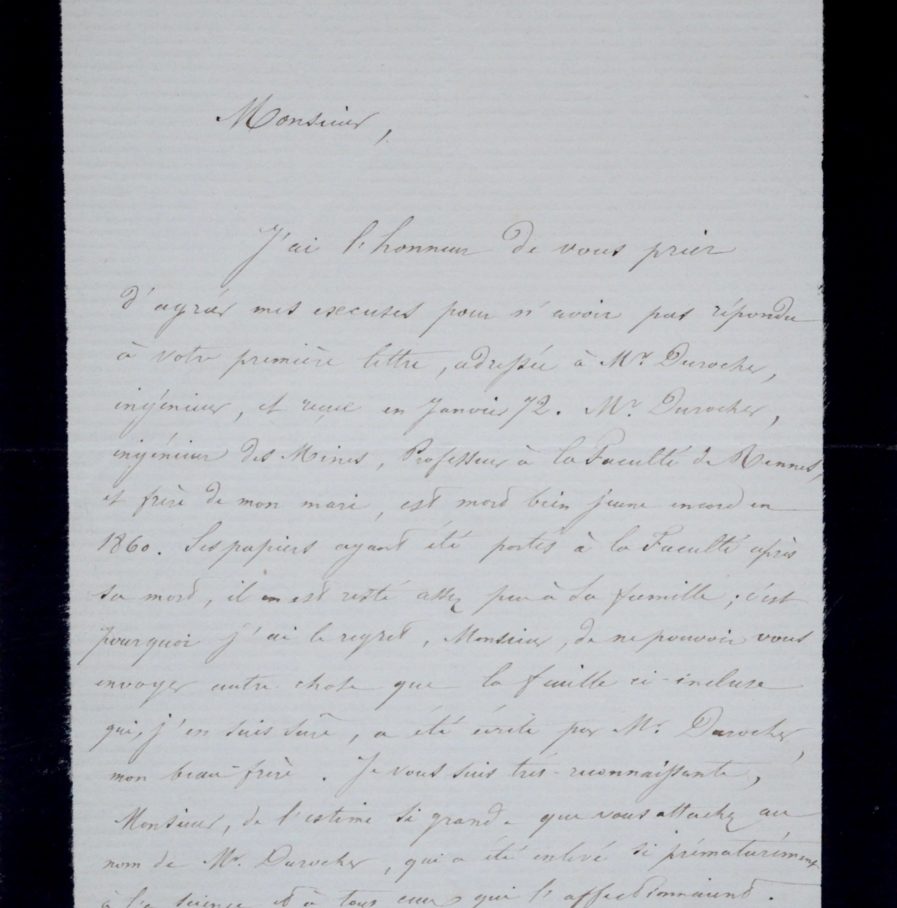 Monsieur,
J'ai l'honneur de vous prier
d'agréer mes excuses pour n'avoir pas répondu
à votre première lettre, adressée à Mr. Durocher,
ingénieur, et reçue en Janvier 72. Mr. Durocher,
ingénieur des Mines, Professeur à la Faculté de Rennes,
et frère de mon mari, est mort bien jeune encore en
1860. Ses papiers ayant été portés à la Faculté après
sa mort, il en est resté assez peu à sa famille; c'est
pourquoi j'ai le regret, Monsieur, de ne pouvoir vous
envoyer autre chose que la feuille ci-incluse
qui, j'en suis sûre, a été écrite par Mr. Durocher,
mon beau-frère. Je vous suis très-reconnaissante,
Monsieur, de l'estime si grande que vous attachez au
nom de Mr. Durocher, qui a été enlevé si prématurément
à la science et à tous ceux qui l'affectionnaient.